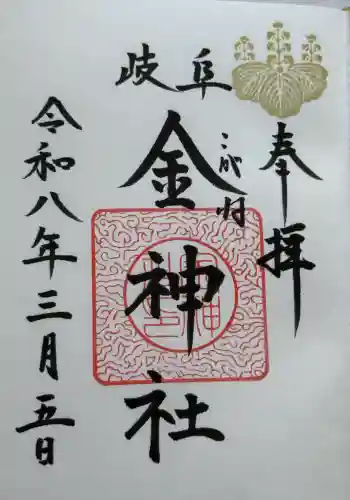 奉拝
岐阜
金神社
令和八年三月五日